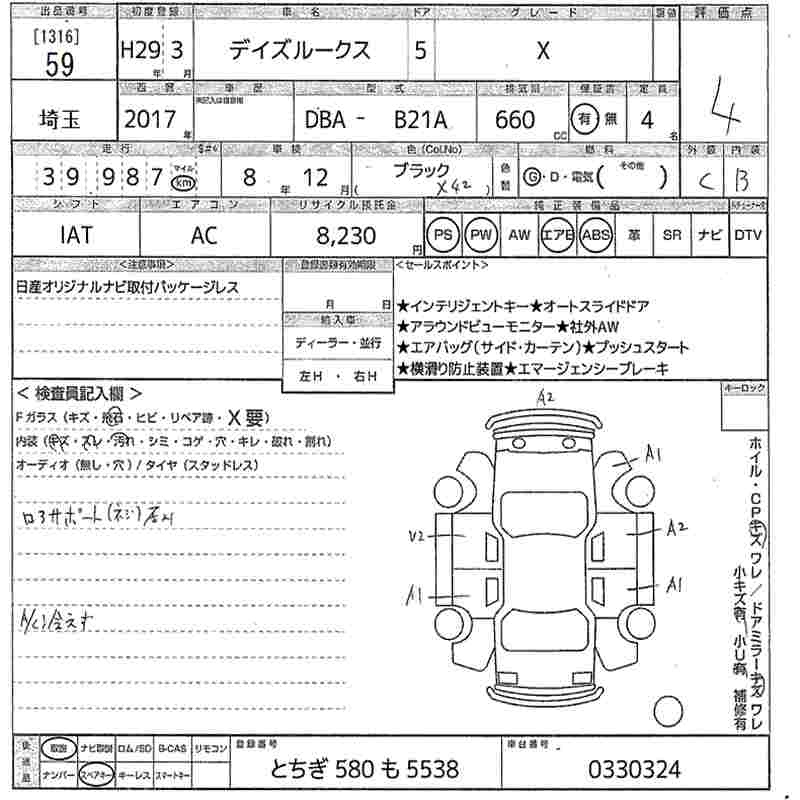 出品番号 初度登録 車名 ドア グレード 評価点
[1316]
59 H29 3 年 月 デイズルークス 5 X 4
西暦 車歴 型式 排気量 保証書 定員
埼玉 2017 年 DBA - B21A 660 CC 有 無 4 名
走行 車検 色(Col.No) 燃料 外装 内装
39 987 マイル km 8 年 12 月 ブラック ( X42 ) 色替 G・D・電気( その他 ) C B
シフト エアコン リサイクル預託金 純正装備品
IAT AC 8,230 円 PS PW AW エアB ABS 革 SR ナビ DTV
<注意事項> 登録書類有効期限 <セールスポイント>
日産オリジナルナビ取付パッケージレス
月 日
★インテリジェントキー★オートスライドドア
輸入車
★アラウンドビューモニター★社外AW
ディーラー・並行
★エアバッグ(サイド・カーテン)★プッシュスタート
左H ・ 右H
★横滑り防止装置★エマージェンシーブレーキ
< 検査員記入欄 > キーロック
Fガラス (キズ・飛石・ヒビ・リペア跡・X要)
内装 (キズ・スレ・汚れ・シミ・コゲ・穴・キレ・破れ・割れ)
オーディオ (無し・穴) / タイヤ (スタッドレス)
A2
A1
V2
A2
A1
A1
ホイル・CPキズワレ/ドアミラーキズワレ
小キズ有 小U有 補修有
後送品 取説 ナビ取説 ロム/SD B-CAS リモコン 登録番号 車台番号
ナンバー スペアキー キーレス スマートキー とちぎ 580 も 5538 0330324